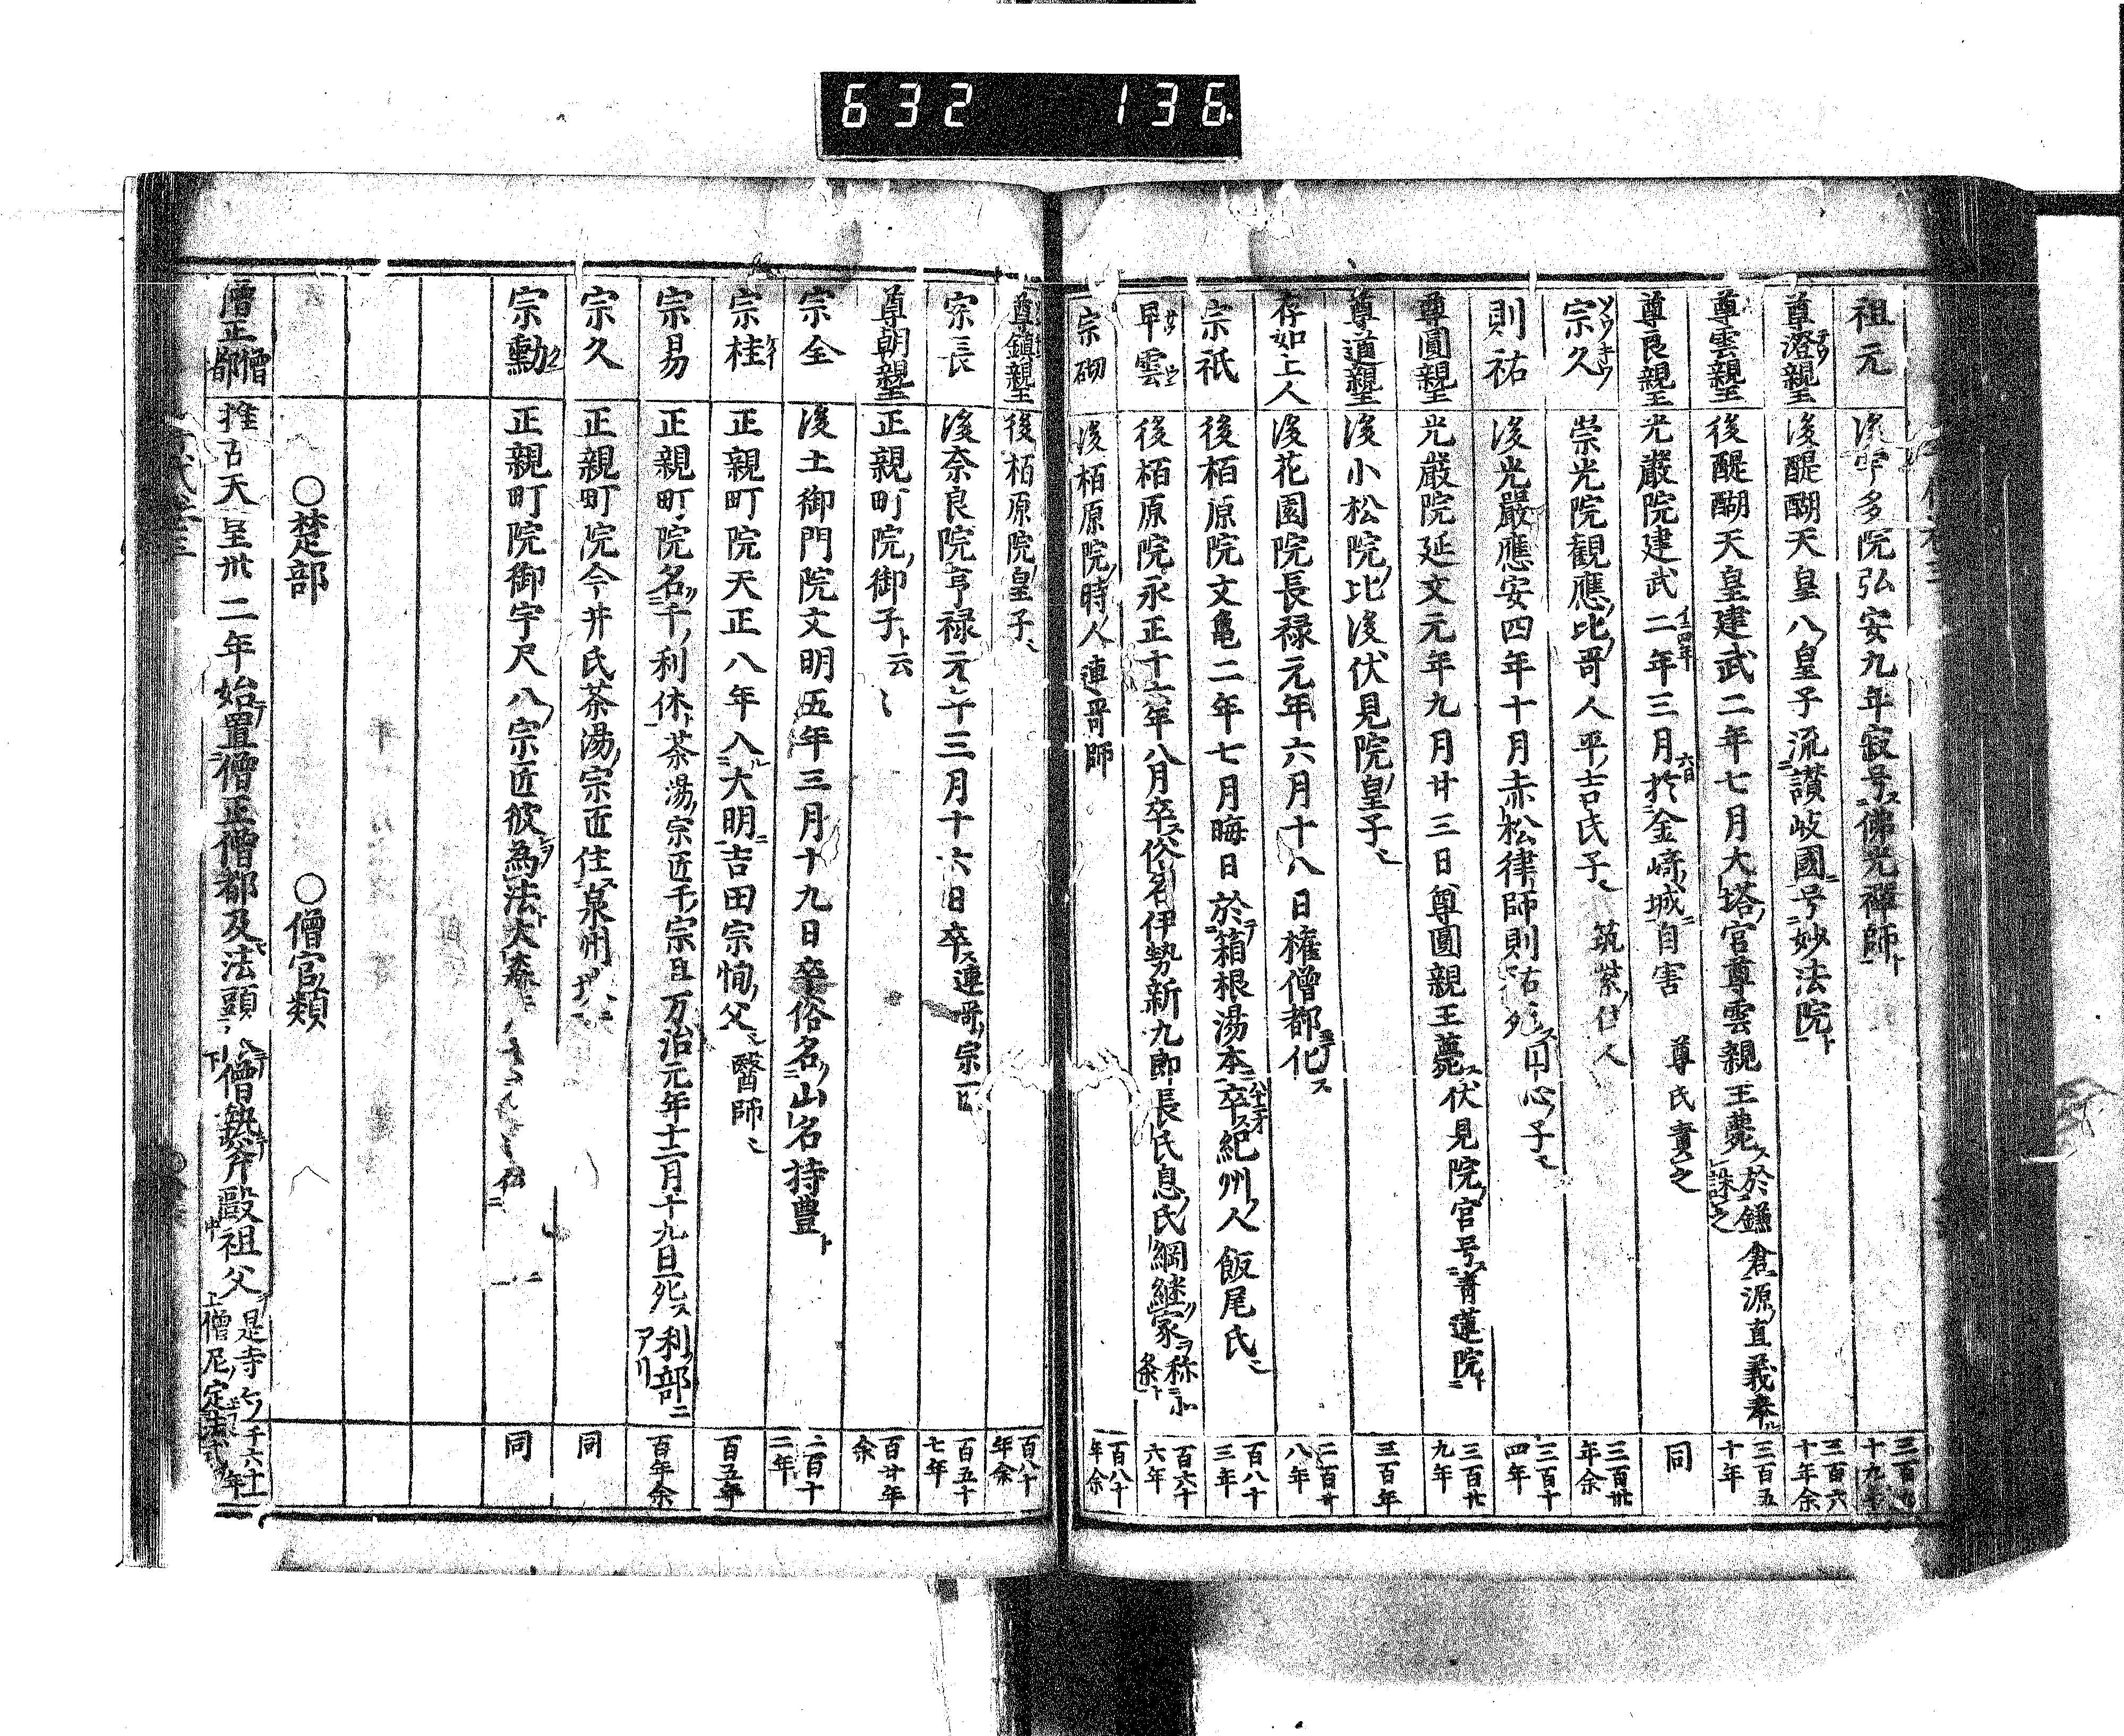 632 136
祖元 後宇多院弘安九年寂号ス佛光禪師ト 三百九十九年
尊澄親王 後醍醐天皇八皇子流讃岐國ニ号ニ妙法院ト 三百六十年余
尊雲親王 後醍醐天皇建武二年七月大塔宮尊雲親王薨ス於鎌倉源直義奉誅之 三百五十年
尊良親王 光嚴院建武二年三月六日於金﨑城ニ自害 尊氏責之 同
宗久 崇光院觀應比哥人平吉氏子 筑紫住人 三百卅年余
則祐 後光嚴應安四年十月赤松律師則祐死ス円心子 三百十四年
尊圓親王 光嚴院延文元年九月廿三日尊圓親王薨ス伏見院宮号青蓮院ト 三百廿九年
尊道親王 後小松院比後伏見院皇子 三百年
存如上人 後花園院長禄元年六月十八日權僧都化ス 二百廿八年
宗祇 後栢原院文亀二年七月晦日於箱根湯本卒ス紀州人飯尾氏 百八十三年
早雲 後栢原院永正十六年八月卒ス俗名伊勢新九郎長氏息氏綱継家ヲ称小条ト 百六十六年
宗砌 後栢原院時人連哥師 百八十年余
尊鎮親王 後栢原院皇子 百八十年余
宗長 後奈良院亨禄元年三月十六日卒ス連哥宗一 百五十七年
尊朝親王 正親町院御子ト云 百廿年余
宗全 後土御門院文明五年三月十九日卒俗名山名持豊ト 二百十二年
宗桂 正親町院天正八年入大明ニ吉田宗恂父醫師 百五年
宗易 正親町院名千利休ト茶湯宗匠千宗旦万治元年十二月十九日死ス利部ニアリ 百年余
宗久 正親町院今井氏茶湯宗匠住泉州 同
宗勳 正親町院御宇尺八宗匠彼為法 同
○楚部 ○僧官類
僧正僧都 推古天皇卅二年始置僧正僧都及法頭 僧執斧毆祖父 是寺 僧尼定法 千六十年